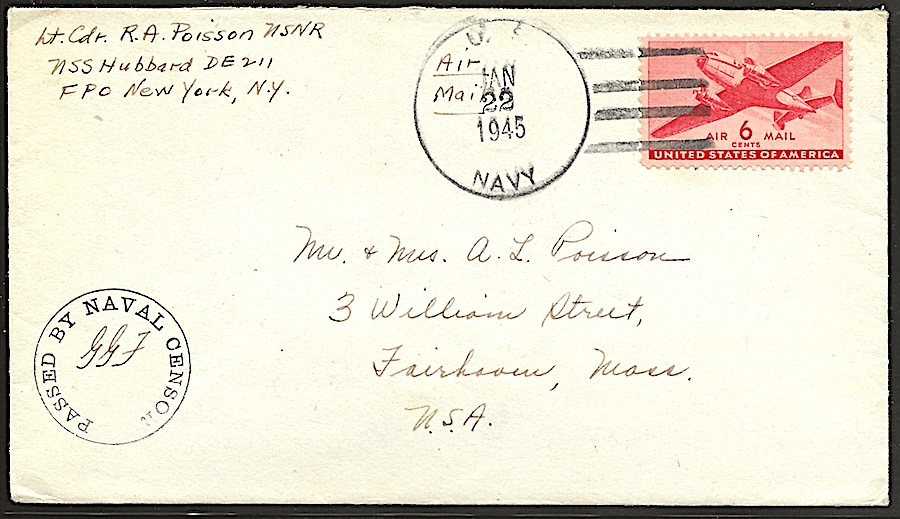 Lt. Cdr. R.A. Poisson USNR
USS Hubbard DE 211
FPO New York, N.Y.
Air
Mail
U. S.
JAN
22
1945
NAVY
AIR 6 MAIL
CENTS
UNITED STATES OF AMERICA
Mr. & Mrs. A. L. Poisson
3 William Street,
Fairhaven, Mass.
U.S.A.
PASSED BY NAVAL CENSOR
GGF